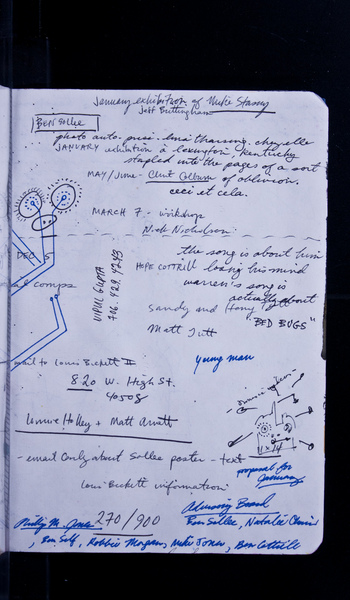 January exhibition of Mike Stasny
Jeff Buttingham
BEN Sollee
photo auto.
JANUARY exhibition @ Lexington, Kentucky
stapled into the pages of a sort
MAY/June - Clint Colburn of oblivion.
ceci et cela.
MARCH 7 - workshop
Nick Nicholson
the song is about him
DEC 5
HOPE COTTRILL losing his mind
warren's song is
actually about
al comps
VIPUL GUPTA
706. 429. 4243
sandy and
"BED BUGS"
Matt
mail to Louis Bickett II
young man
820 W. High St.
40508
Lonnie Holley + Matt Arnett
11 x 14
- email Emily about Sollee poster - text
proposal for January
Louis Bickett information
270/900
Advisory Board
Philip M. Jones
Ben Sollee, Natalie
, Ben Self, Robbie Morgan, Mike Jones, Ben Cottrill